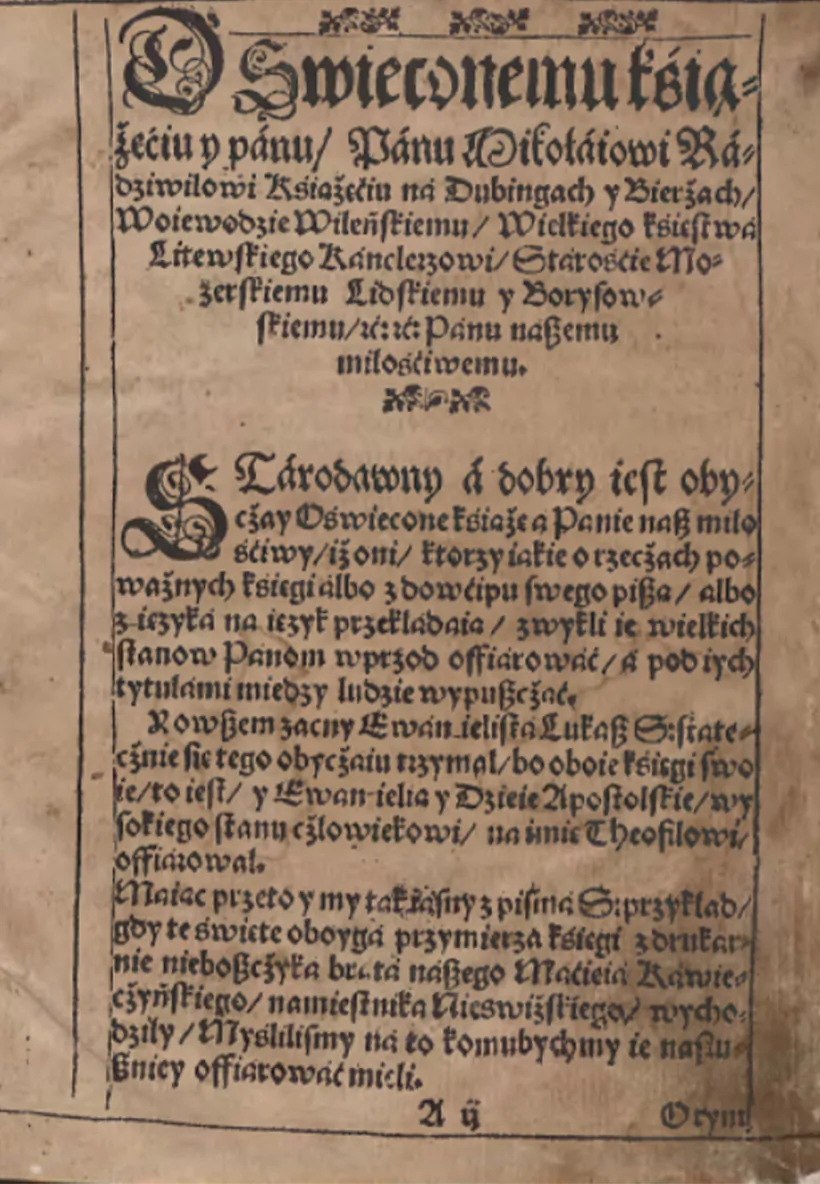 OSwieconemu kśią⸗
żećiu y pánu/ Pánu Mikołáiowi Rá⸗
dziwilowi Książećiu ná Dubingach y Bierżach/
Woiewodzie Wileńſkiemu/ Wielkiego kśieſtwá
Litewſkiego Kánclerzowi/ Stárośćie Mo⸗
żerſkiemu Lidſkiemu y Boryſow⸗
ſkiemu/ ꝛć: ꝛć: Pánu náßemu
miłośćiwemu.
STárodawny á dobry ieſt oby⸗
cżay Oświecone kśiążę a Panie naß miło
śćiwy/ iż oni/ ktorzy iákie o rzecżách po⸗
ważnych kśięgi álbo z dowćipu ſwego pißą/ albo
z ięzyká ná ięzyk przekłádáią/ zwykli ie wielkich
ſtanow Pánom wprzod offiárowáć/ á pod iych
tytułámi miedzy ludzie wypußcżáć.
Rowßem zacny Ewanielißtá Lukaß S: ſtate⸗
cżnie ſię tego obycżaiu trzymał/ bo oboie kśięgi ſwo
ie/ to ieſt/ y Ewanielią y Dzieie Apoſtolſkie/ wy
ſokiego ſtanu cżłowiekowi/ ná imię Theofilowi/
offiárował.
Máiąc przeto y my ták iáſny z piſmá S: przykład/
gdy te święte oboygá przymierza kśięgi z drukar⸗
nie nieboßcżyká brátá náßego Máćieiá Káwie⸗
cżyńſkiego/ namieſtniká Nieświżſkiego/ wycho⸗
dziły/ Myśliliſmy ná to komubychmy ie naſłu⸗
ßniey offiárowáć mieli.
A ij Otym